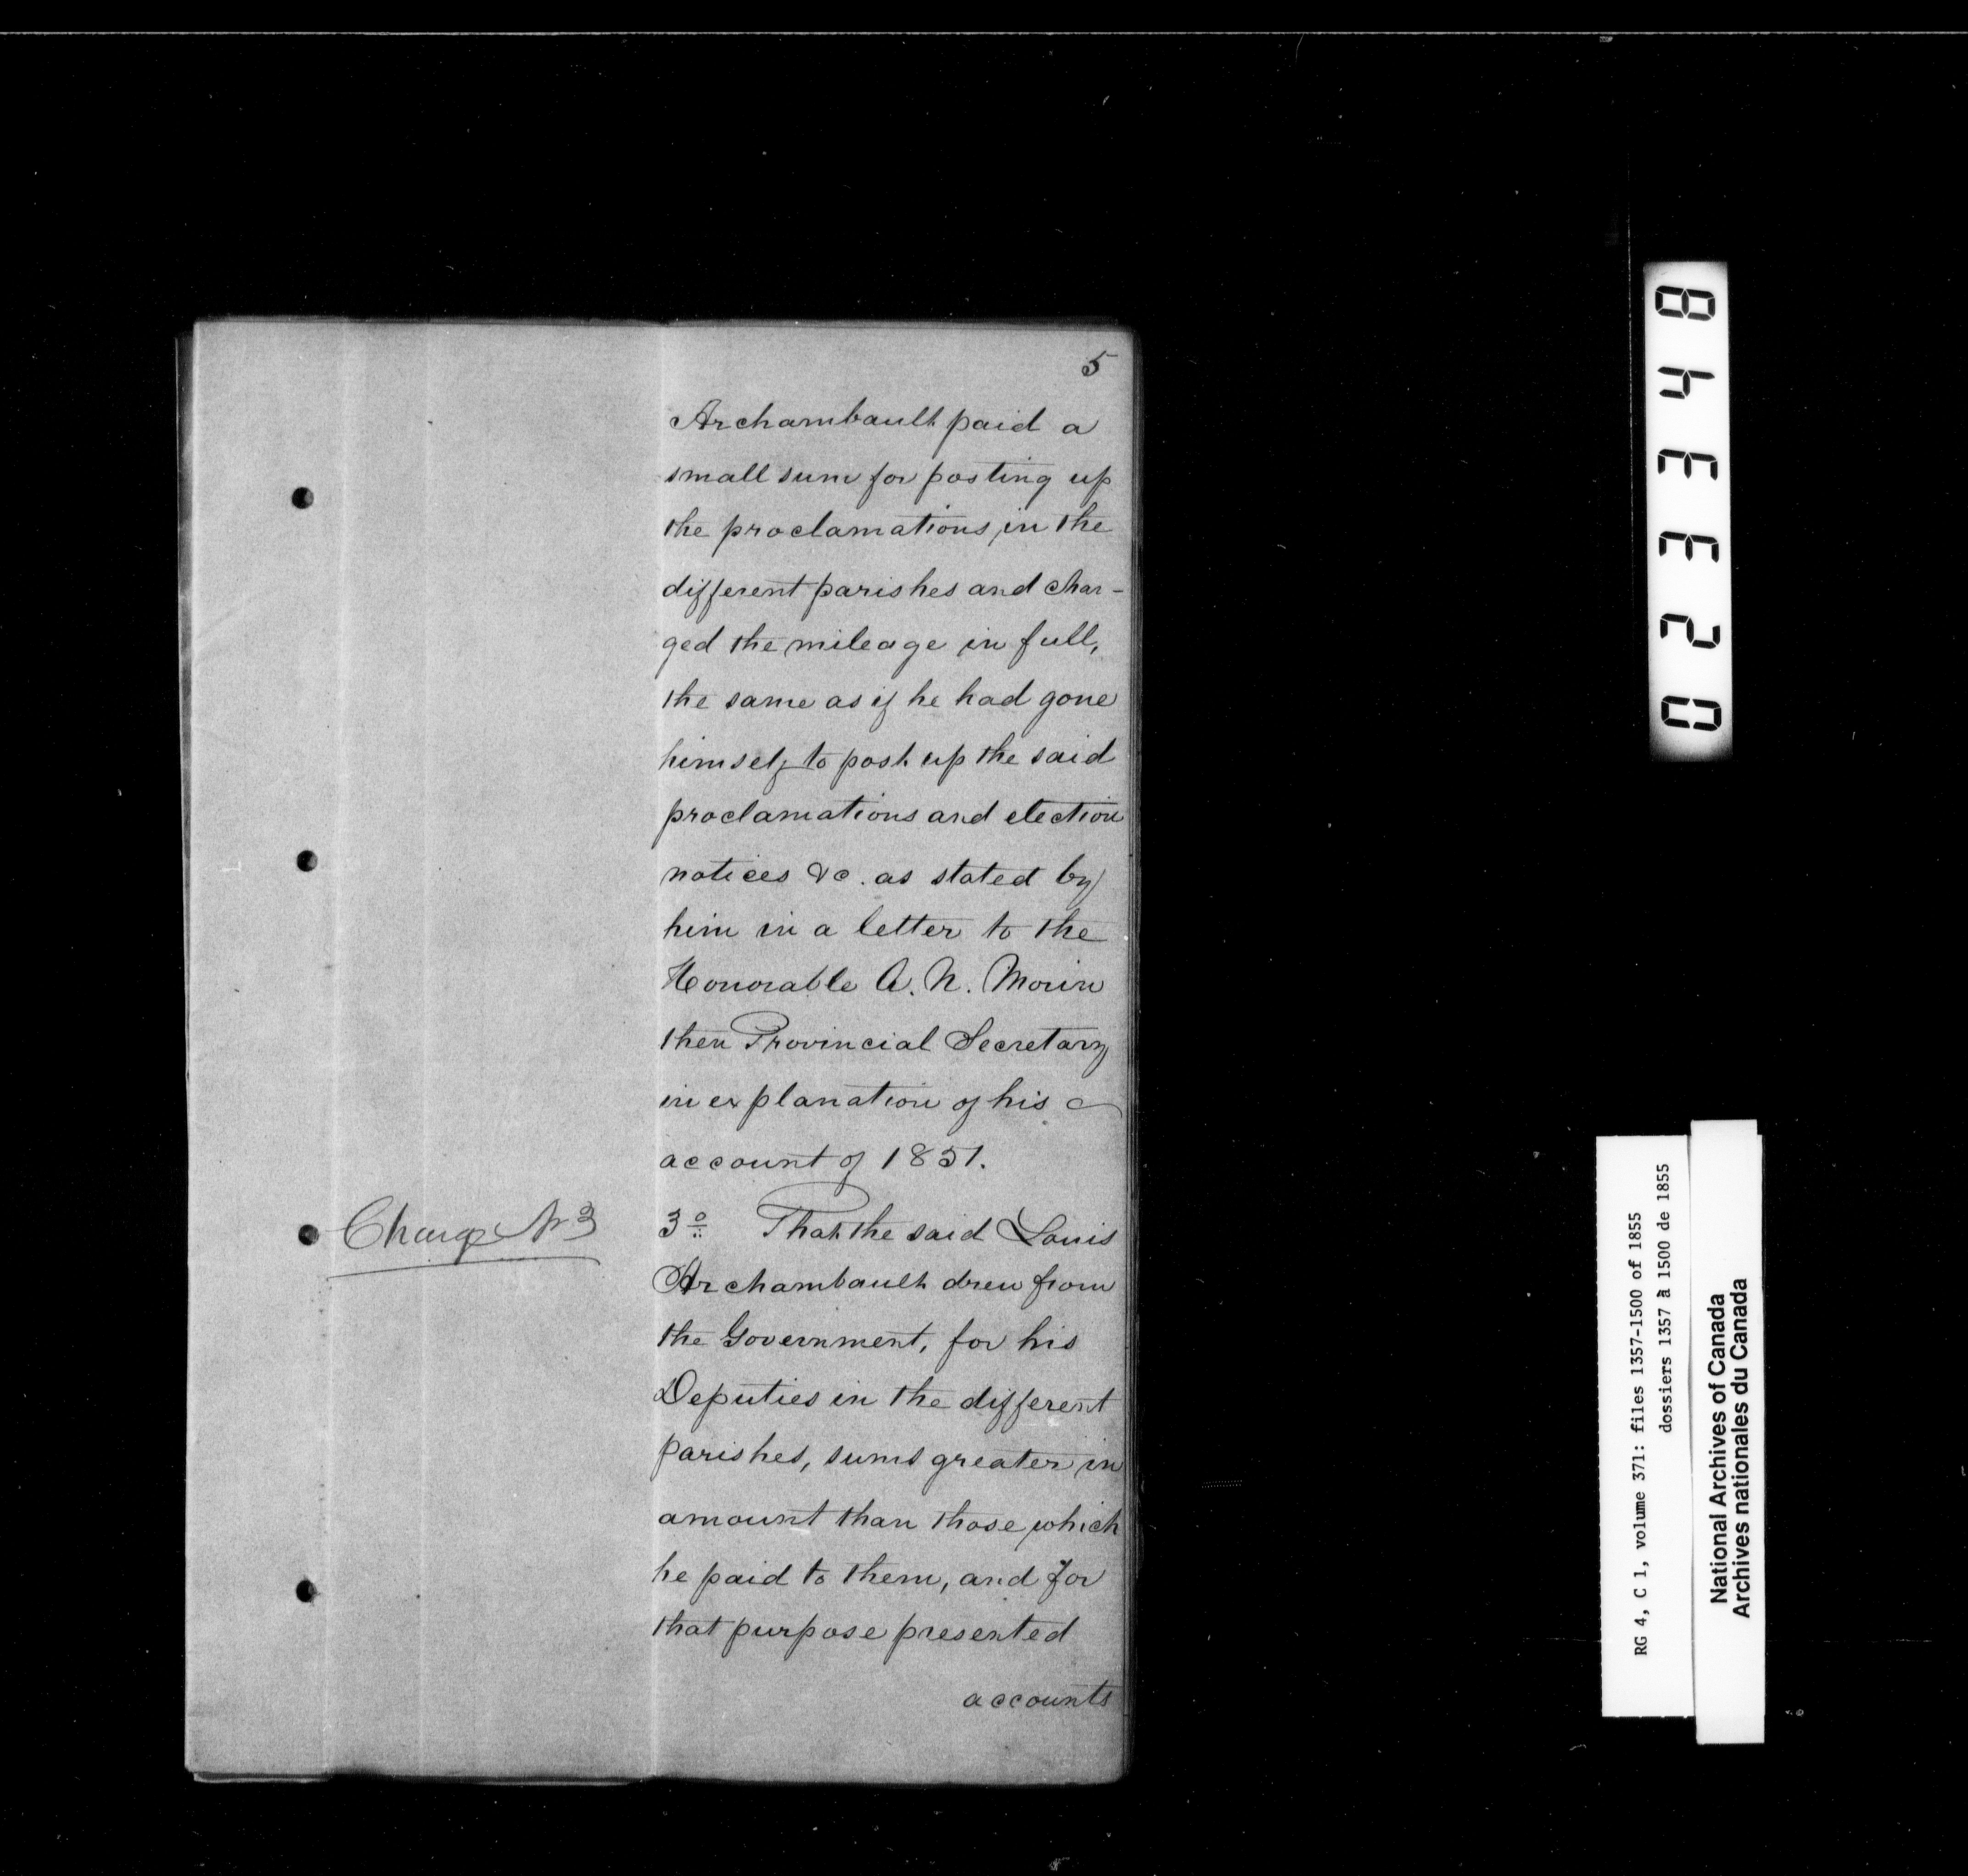 5
Archambault paid a
small sum for posting up
the proclamations, in the
different parishes and char-
ged the mileage in full,
the same as if he had gone
himself to post up the said
proclamations and election
notices &c. as stated by
him in a letter to the
Honorable A. N. Morin
then Provincial Secretary
in explanation of his
account of 1851.
Charge No 3
3o That the said Louis
Archambault drew from
the Government, for his
Deputies in the different
parishes, sums greater in
amount than those which
he paid to them, and for
that purpose presented
accounts
023348
RG 4, C 1, volume 371: files 1357-1500 of 1855
dossiers 1357 à 1500 de 1855
National Archives of Canada
Archives nationales du Canada